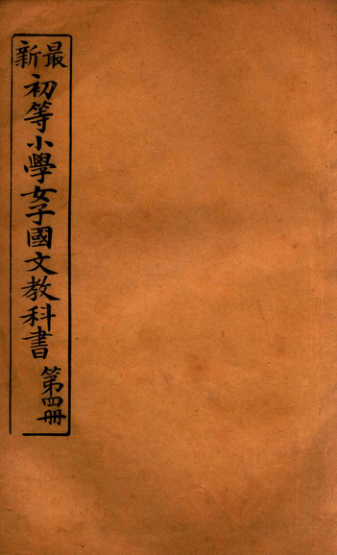 最新
初等小學女子國文教科書
第四册